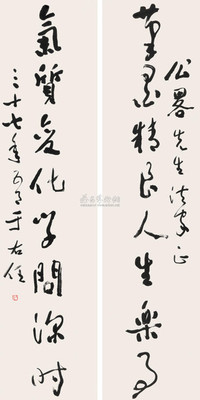 公略先生法家正
笔墨精良人生乐事
氣質變化学問深时
三十七年 于右任